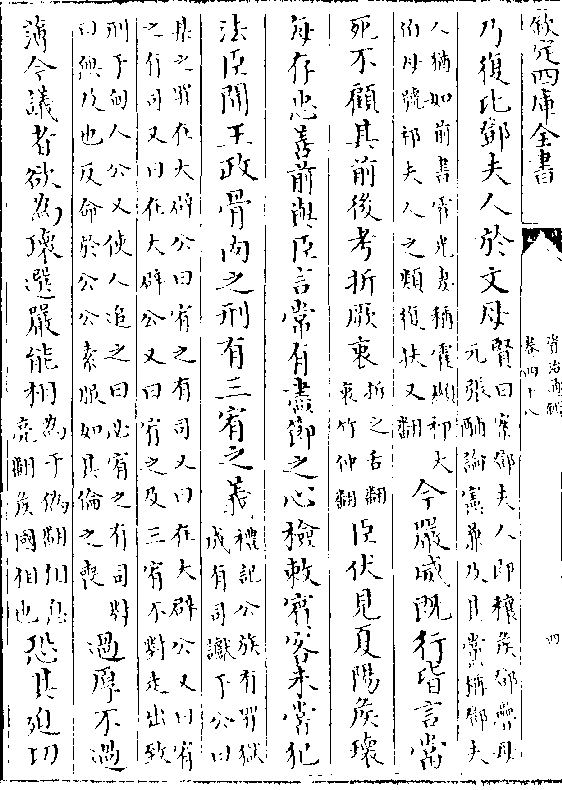 欽定四庫全書
資治通鑑
卷四十八
四
乃復比鄧夫人於文母賢曰案鄧夫人即穰侯鄧疊母
元張酺論憲兼及其黨稱鄧夫
人猶如前書霍光妻稱霍顯祁大
伯母號祁夫人之類復扶又翻今嚴威既行皆言當
死不顧其前後考折厥衷折之舌翻
衷竹仲翻臣伏見夏陽侯瓌
每存忠善前與臣言常有盡節之心檢敕賓客未嘗犯
法臣聞王政骨肉之刑有三宥之義禮記公族有罪獄
成有司讞于公曰
某之罪在大辟公曰宥之有司又曰在大辟公又曰宥
之有司又曰在大辟公又曰宥之及三宥不對走出致
刑于甸人公又使人追之曰必宥之有司對
曰無及也反命於公公素服如其倫之喪過厚不過
薄今議者欲為瓌選嚴能相為于偽翻相息
亮翻侯國相也恐其迫切